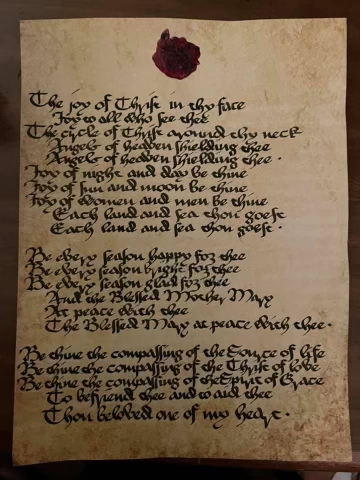 The joy of Christ in thy face
Joy to all who see thee
The circle of Christ around thy neck
Angels of heaven shielding thee
Angels of heaven shielding thee.
Joy of night and day be thine
Joy of sun and moon be thine
Joy of women and men be thine
Each land and sea thou goest
Each land and sea thou goest.
Be every season happy for thee
Be every season bright for thee
Be every season glad for thee
And the Blessed Mother Mary
At peace with thee
The Blessed Mary at peace with thee.
Be thine the compassing of the Source of life
Be thine the compassing of the Christ of love
Be thine the compassing of the Spirit of Grace
To befriend thee and to aid thee
Thou beloved one of my heart.